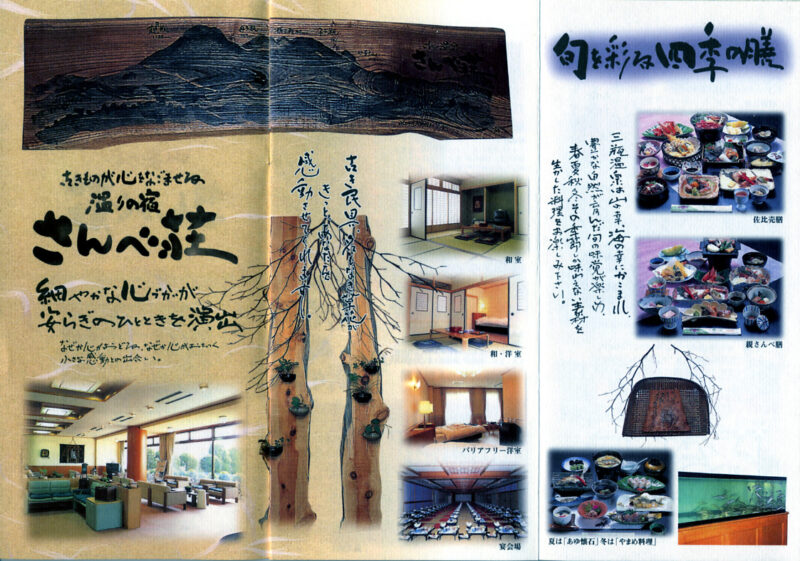 さんべ荘
古きものが心をなごませる、
温りの宿
さんべ荘
細やかな心づかいが
安らぎのひとときを演出
なぜか心が
小さな感動との出会い。
きっとあなたを
感動させてくれます…。
和室
和・洋室
バリアフリー洋室
宴会場
旬を彩る四季の膳
三瓶温泉は山の幸、海の幸にかこまれ、
豊かな自然が育んだ旬の味覚が楽しめ、
春夏秋冬その季節しか味わえない素材を
生かした料理をお楽しみ下さい。
佐比売膳
親さんべ膳
夏は「あゆ懐石」冬は「やまめ料理」